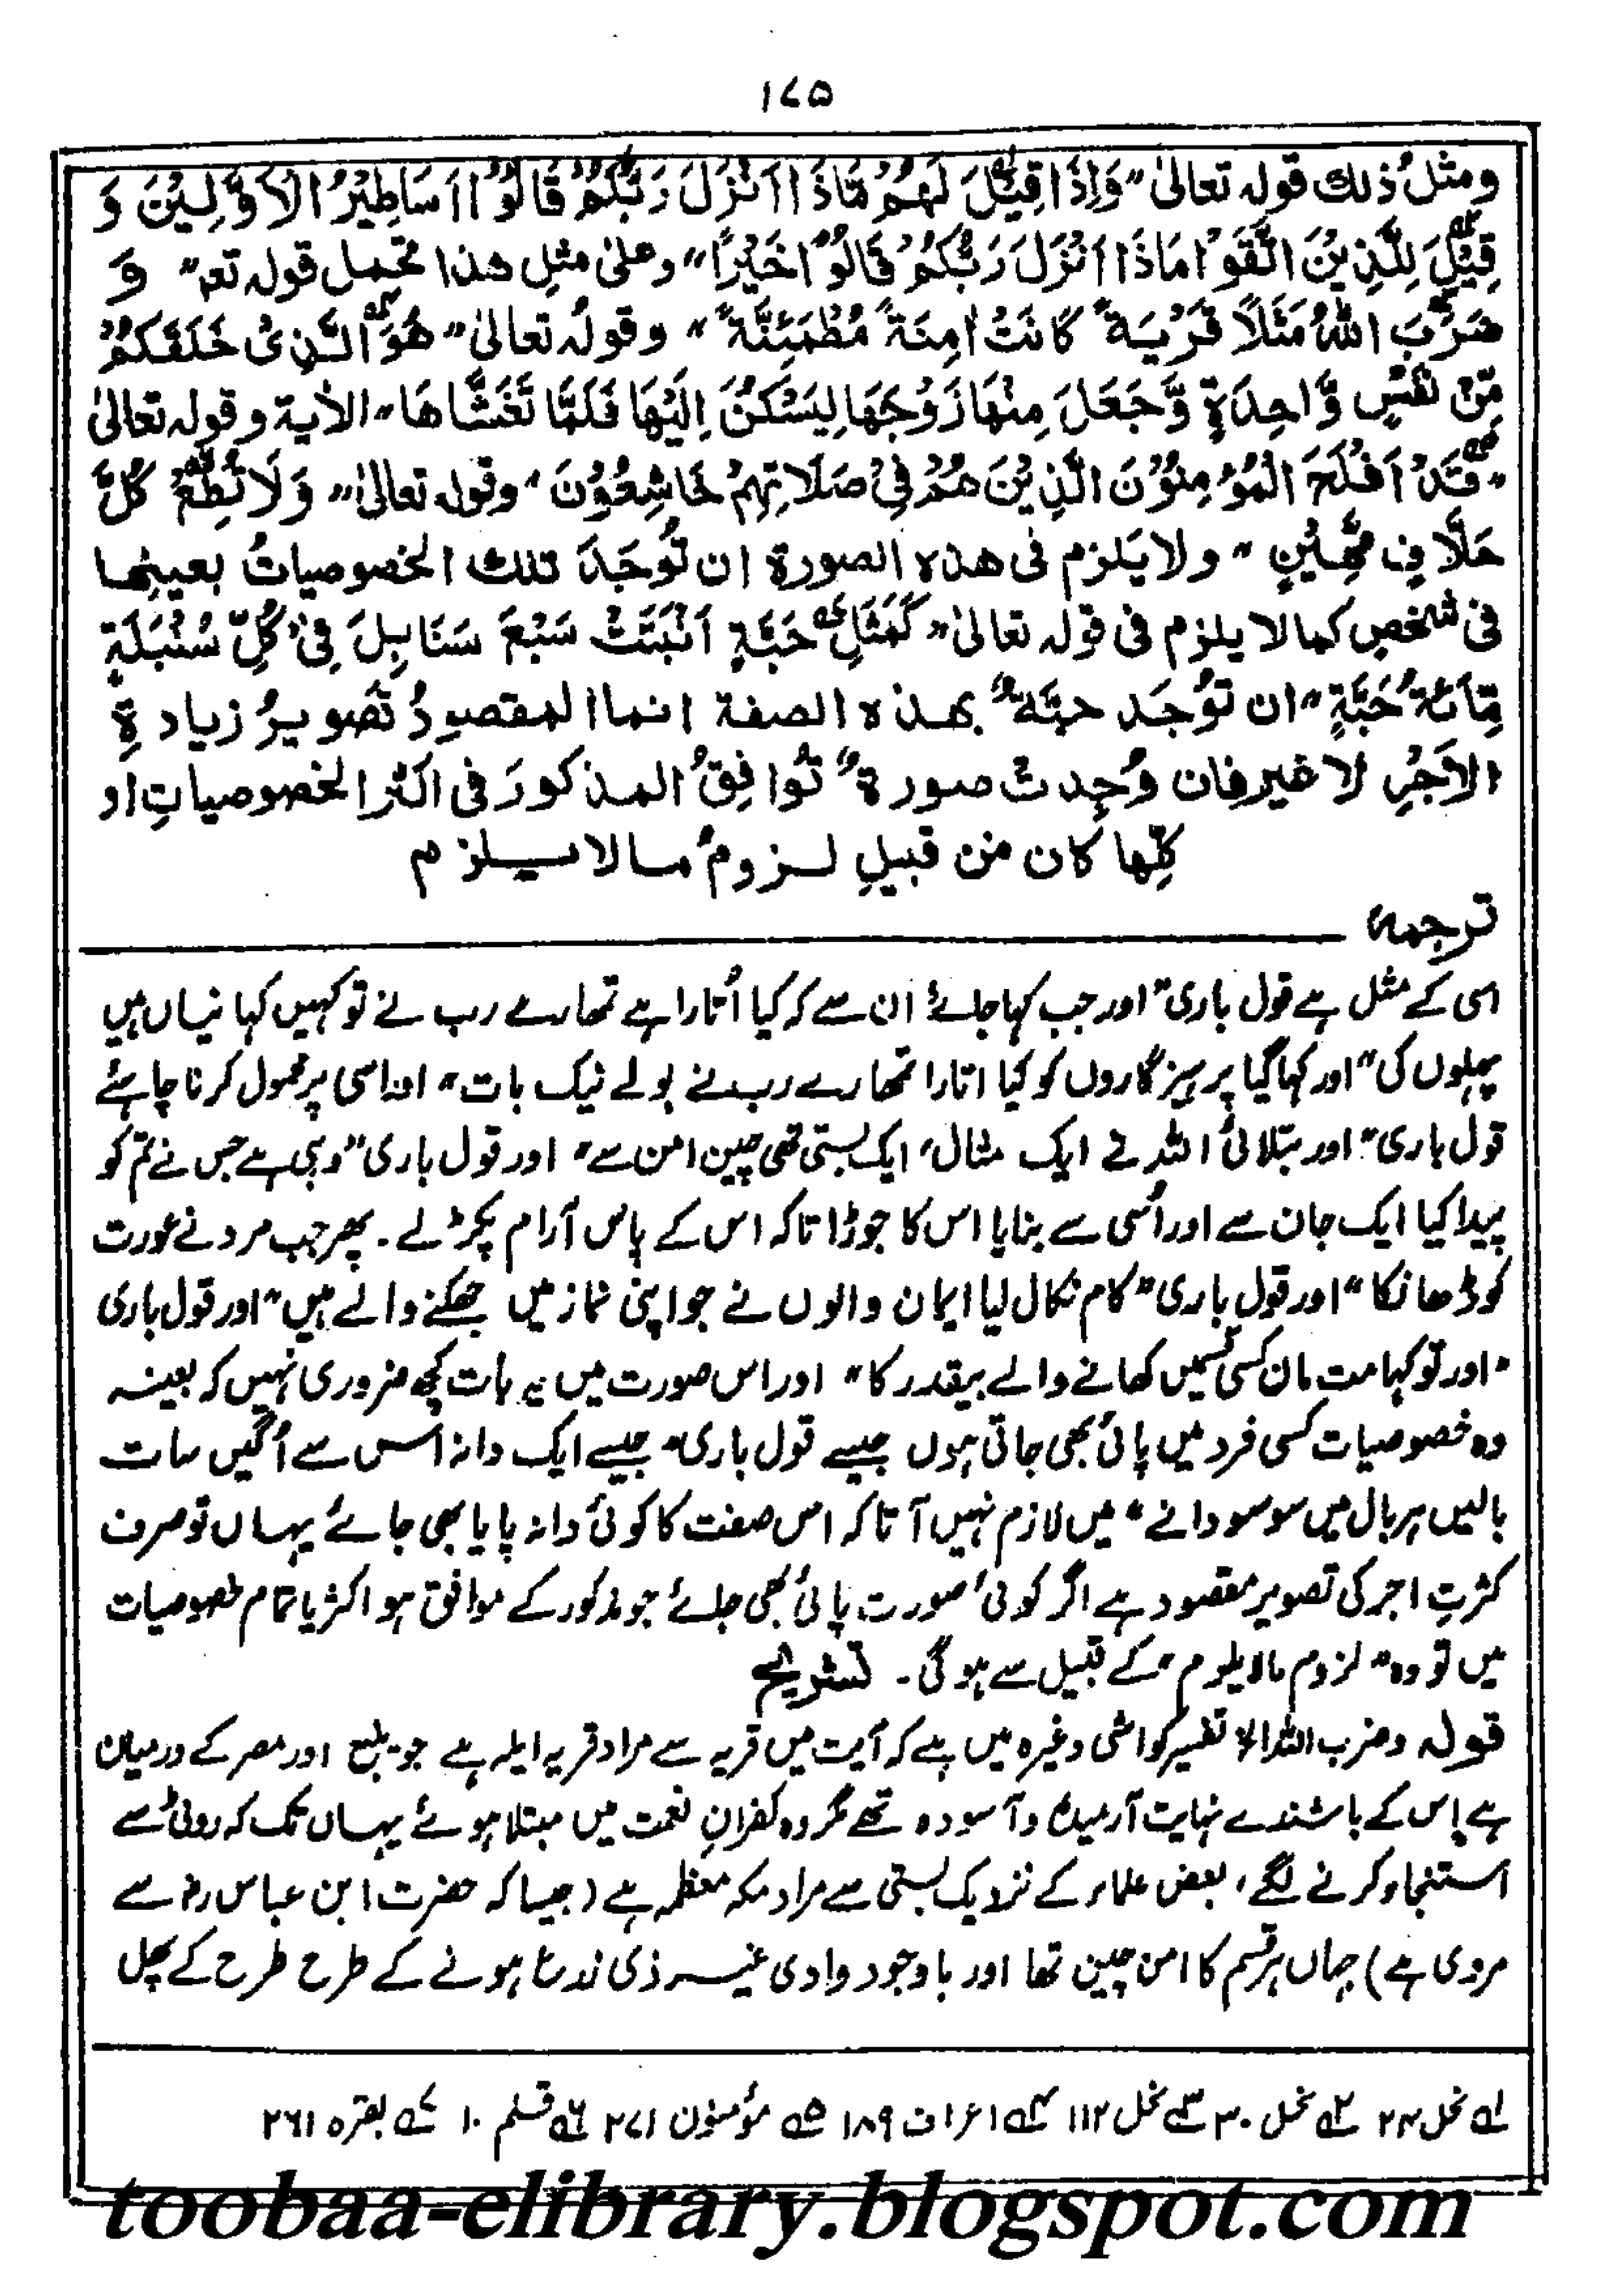 ۱۷۵
ومثلُ ذلك قولہ تعالیٰ "وَاِذَا قِيْلَ لَهُمْ مَّاذَا اَنْزَلَ رَبُّكُمْ قَالُوْا اَسَاطِيْرُ الْاَوَّلِيْنَ وَ
قِيْلَ لِلَّذِيْنَ اتَّقَوْا مَاذَا اَنْزَلَ رَبُّكُمْ قَالُوْا خَيْرًا" وعلیٰ مثلِ هذا تحمل قولہ تعہ" وَ
ضَرَبَ اللهُ مَثَلًا قَرْيَةً كَانَتْ اٰمِنَةً مُّطْمَئِنَّةً" وقولُہ تعالیٰ "هُوَ الَّذِیْ خَلَقَكُمْ
مِّنْ نَّفْسٍ وَّاحِدَةٍ وَّجَعَلَ مِنْهَا زَوْجَهَا لِيَسْكُنَ اِلَيْهَا فَلَمَّا تَغَشَّاهَا" الاٰية وقولہ تعالیٰ
"قَدْ اَفْلَحَ الْمُؤْمِنُوْنَ الَّذِيْنَ هُمْ فِیْ صَلَاتِهِمْ خَاشِعُوْنَ" وقولہ تعالیٰ" وَلَا تُطِعْ كُلَّ
حَلَّافٍ مَّهِيْنٍ" ولا يَلزم فی هذه الصورة ان تُوجَدَ تلك الخصوصياتُ بعينها
فی شخصٍ كما لا يلزم فی قولہ تعالیٰ "كَمَثَلِ حَبَّةٍ اَنْبَتَتْ سَبْعَ سَنَابِلَ فِیْ كُلِّ سُنْبُلَةٍ
مِّائَةُ حَبَّةٍ" ان تُوجَد حبّةٌ بهذه الصفة انما المقصودُ تصويرُ زيادةِ
الاَجْرِ لا غير فان وُجِدت صورةٌ تُوافِقُ المذكورَ فی اكثر الخصوصياتِ او
كلِّها كان من قبيلِ لزومُ مالا يلزم
ترجمہ
اسی کے مثل ہے قول باری" اور جب کہا جائے ان سے کہ کیا اُتارا ہے تمھارے رب نے تو کہیں کہانیاں ہیں
پہلوں کی" اور کہا گیا پرہیزگاروں کو کیا اتارا تمھارے رب نے بولے نیک بات" اور اسی پر محمول کرنا چاہئے
قول باری" اور بتلائی اللہ نے ایک مثال، ایک بستی تھی چین امن سے" اور قول باری" وہی ہے جس نے تم کو
پیدا کیا ایک جان سے اور اُسی سے بنایا اس کا جوڑا تاکہ اس کے پاس آرام پکڑے۔ پھر جب مرد نے عورت
کو ڈھانکا" اور قول باری" کام نکال لیا ایمان والوں نے جو اپنی نماز میں جھکنے والے ہیں" اور قول باری
"اور تو کہا مت مان کسی قسمیں کھانے والے بیقدر کا" اور اس صورت میں یہ بات کچھ ضروری نہیں کہ بعینہ
وہ خصوصیات کسی فرد میں پائی بھی جاتی ہوں جیسے قول باری" جیسے ایک دانہ اُس سے اُگیں سات
بالیں ہر بال میں سو سو دانے" میں لازم نہیں آتا کہ اس صفت کا کوئی دانہ پایا بھی جائے یہاں تو صرف
کثرتِ اجر کی تصویر مقصود ہے اگر کوئی صورت پائی بھی جائے جو مذکور کے موافق ہو اکثر یا تمام خصوصیات
میں تو وہ" لزوم مالا یلزم" کے قبیل سے ہوگی۔ تشریح
قولہ وضرب اللہ الا تفسیر کواشی وغیرہ میں ہے کہ آیت میں قریہ سے مراد قریہ ایلہ ہے جو ینبع اور مصر کے درمیان
ہے اس کے باشندے نہایت آرمیدہ و آسودہ تھے مگر وہ کفرانِ نعمت میں مبتلا ہوئے یہاں تک کہ روٹی سے
استنجاء کرنے لگے، بعض علماء کے نزدیک بستی سے مراد مکہ معظمہ ہے (جیسا کہ حضرت ابن عباس رض سے
مروی ہے) جہاں ہر قسم کا امن چین تھا اور باوجود وادی غیر ذی زرع ہونے کے طرح طرح کے پھل
لہ نحل ۲۴ ۲ہ نحل ۳۰ ۳ہ نحل ۱۱۲ ۴ہ اعراف ۱۸۹ ۵ہ مؤمنون ۲۷۱ ۶ہ قلم ۱۰ ۷ہ بقرہ ۲۶۱
toobaa-elibrary.blogspot.com